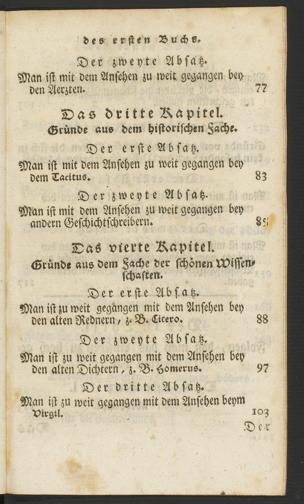 des ersten Buchs.
Der zweyte Absatz.
Man ist mit dem Ansehen zu weit gegangen bey
den Aerzten. 77
Das dritte Kapitel.
Gründe aus dem historischen Fache.
Der erste Absatz.
Man ist mit dem Ansehen zu weit gegangen bey
dem Tacitus. 83
Der zweyte Absatz.
Man ist mit dem Ansehen zu weit gegangen bey
andern Geschichtschreibern. 85
Das vierte Kapitel.
Gründe aus dem Fache der schönen Wissen-
schaften.
Der erste Absatz.
Man ist zu weit gegangen mit dem Ansehen bey
den alten Rednern, z. B. Cicero. 88
Der zweyte Absatz.
Man ist zu weit gegangen mit dem Ansehen bey
den alten Dichtern, z. B. Homerus. 97
Der dritte Absatz.
Man ist zu weit gegangen mit dem Ansehen beym
Virgil. 103
Der